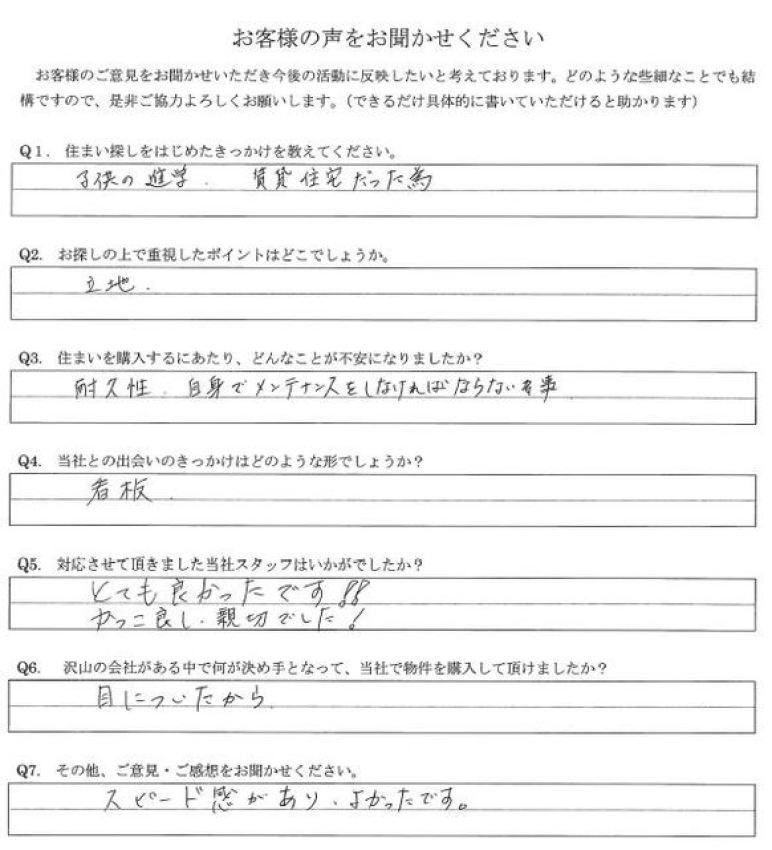 お客様の声をお聞かせください
お客様のご意見をお聞かせいただき今後の活動に反映したいと考えております。どのような些細なことでも結
構ですので、是非ご協力よろしくお願いします。（できるだけ具体的に書いていただけると助かります）
Q1. 住まい探しをはじめたきっかけを教えてください。
子供の進学. 賃貸住宅だった為
Q2. お探しの上で重視したポイントはどこでしょうか。
立地.
Q3. 住まいを購入するにあたり、どんなことが不安になりましたか？
耐久性. 自身でメンテナンスをしなければならない事
Q4. 当社との出会いのきっかけはどのような形でしょうか？
看板.
Q5. 対応させて頂きました当社スタッフはいかがでしたか？
とても良かったです!!
かっこ良し、親切でした!
Q6. 沢山の会社がある中で何が決め手となって、当社で物件を購入して頂けましたか？
目についたから
Q7. その他、ご意見・ご感想をお聞かせください。
スピード感があり、よかったです。